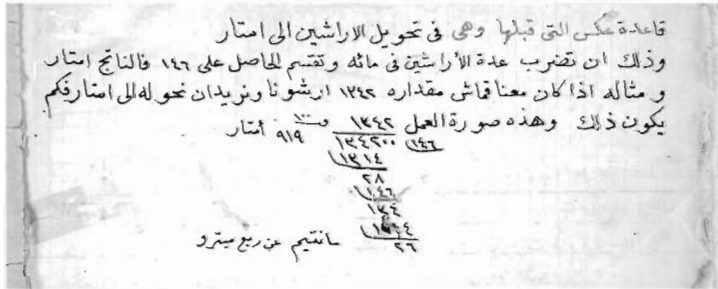 قاعدة عكس التى قبلها وهى فى تحويل الاراشين الى امتار
وذلك ان تضرب عدة الأراشين فى مائه وتقسم الحاصل على ١٤٦ فالناتج امتار
ومثاله اذا كان معنا قماش مقداره ١٣٤٢ ارشونا ونريد ان نحوله الى امتار فكم
يكون ذلك وهذه صورة العمل ١٣٤٢ ١٠٠
١٣٤٢٠٠ ١٤٦ ٩١٩ أمتار
١٣١٤
٢٨
١٤٦
١٣٤
٢٦ سانتيم عن ربع ميترو